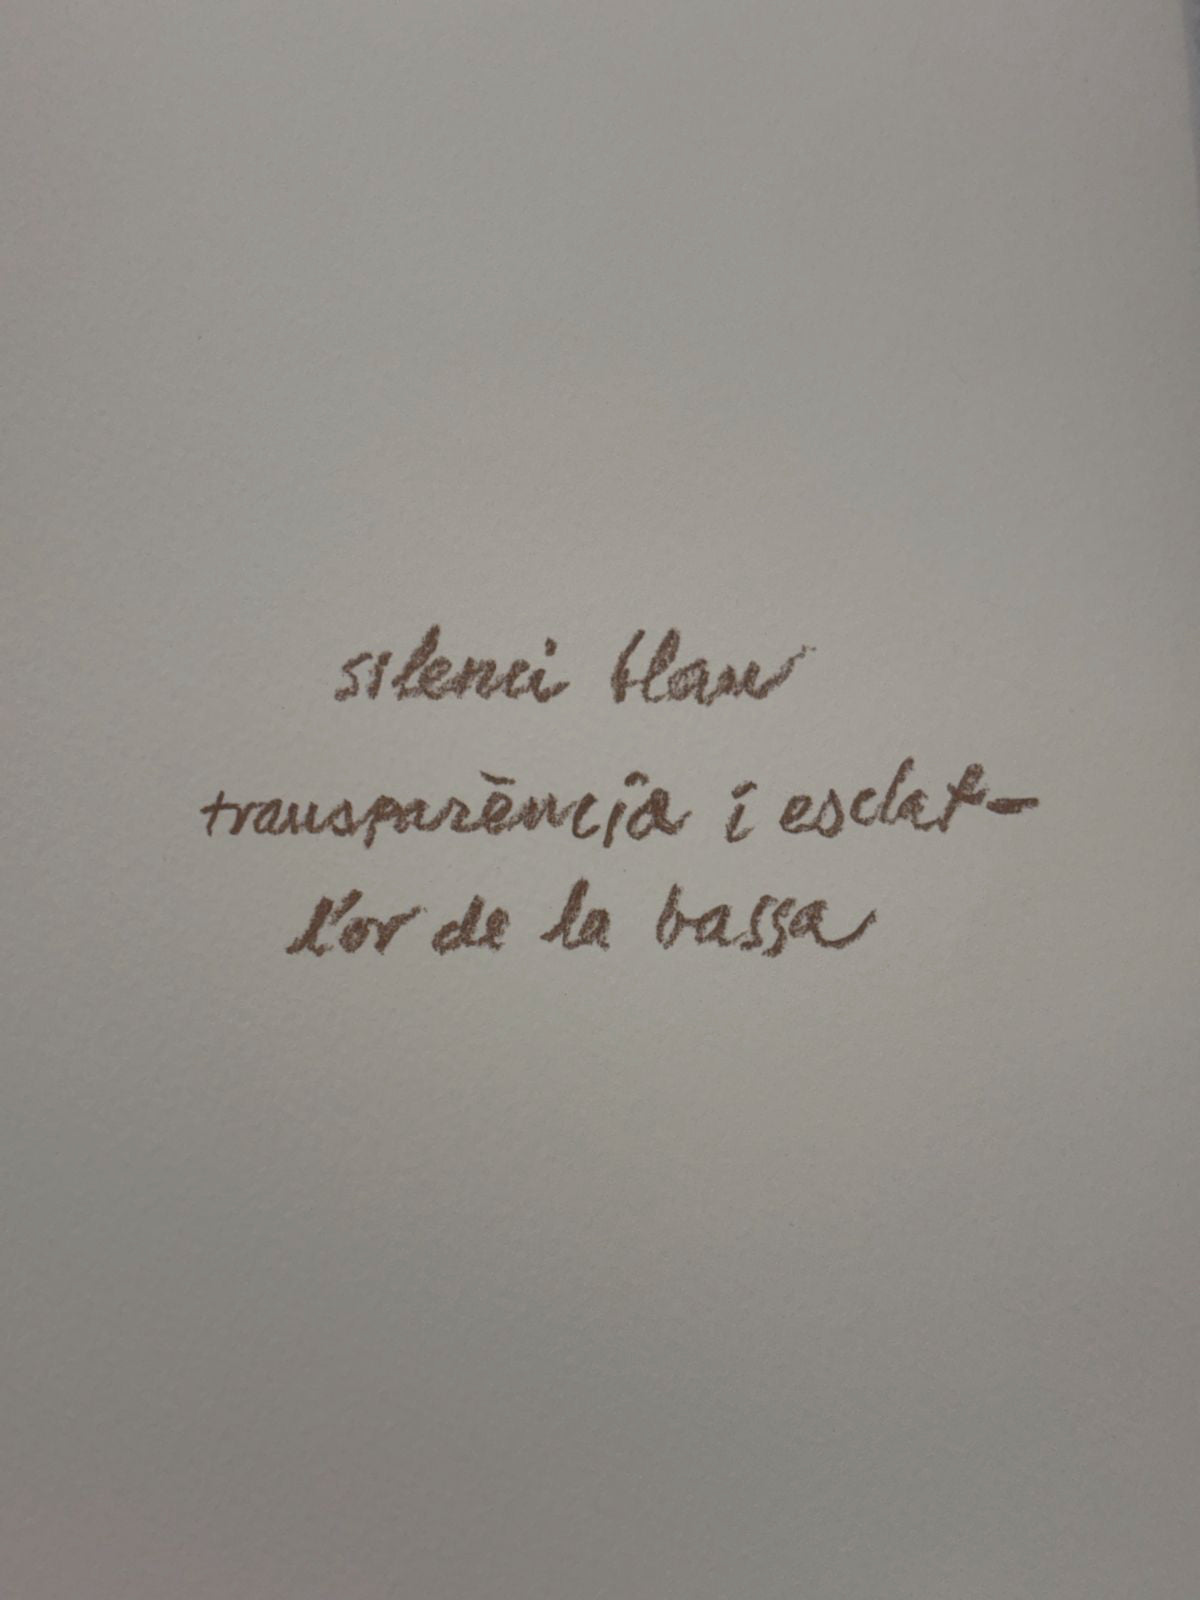 silenci blau
transparència i esclat-
l'or de la bassa